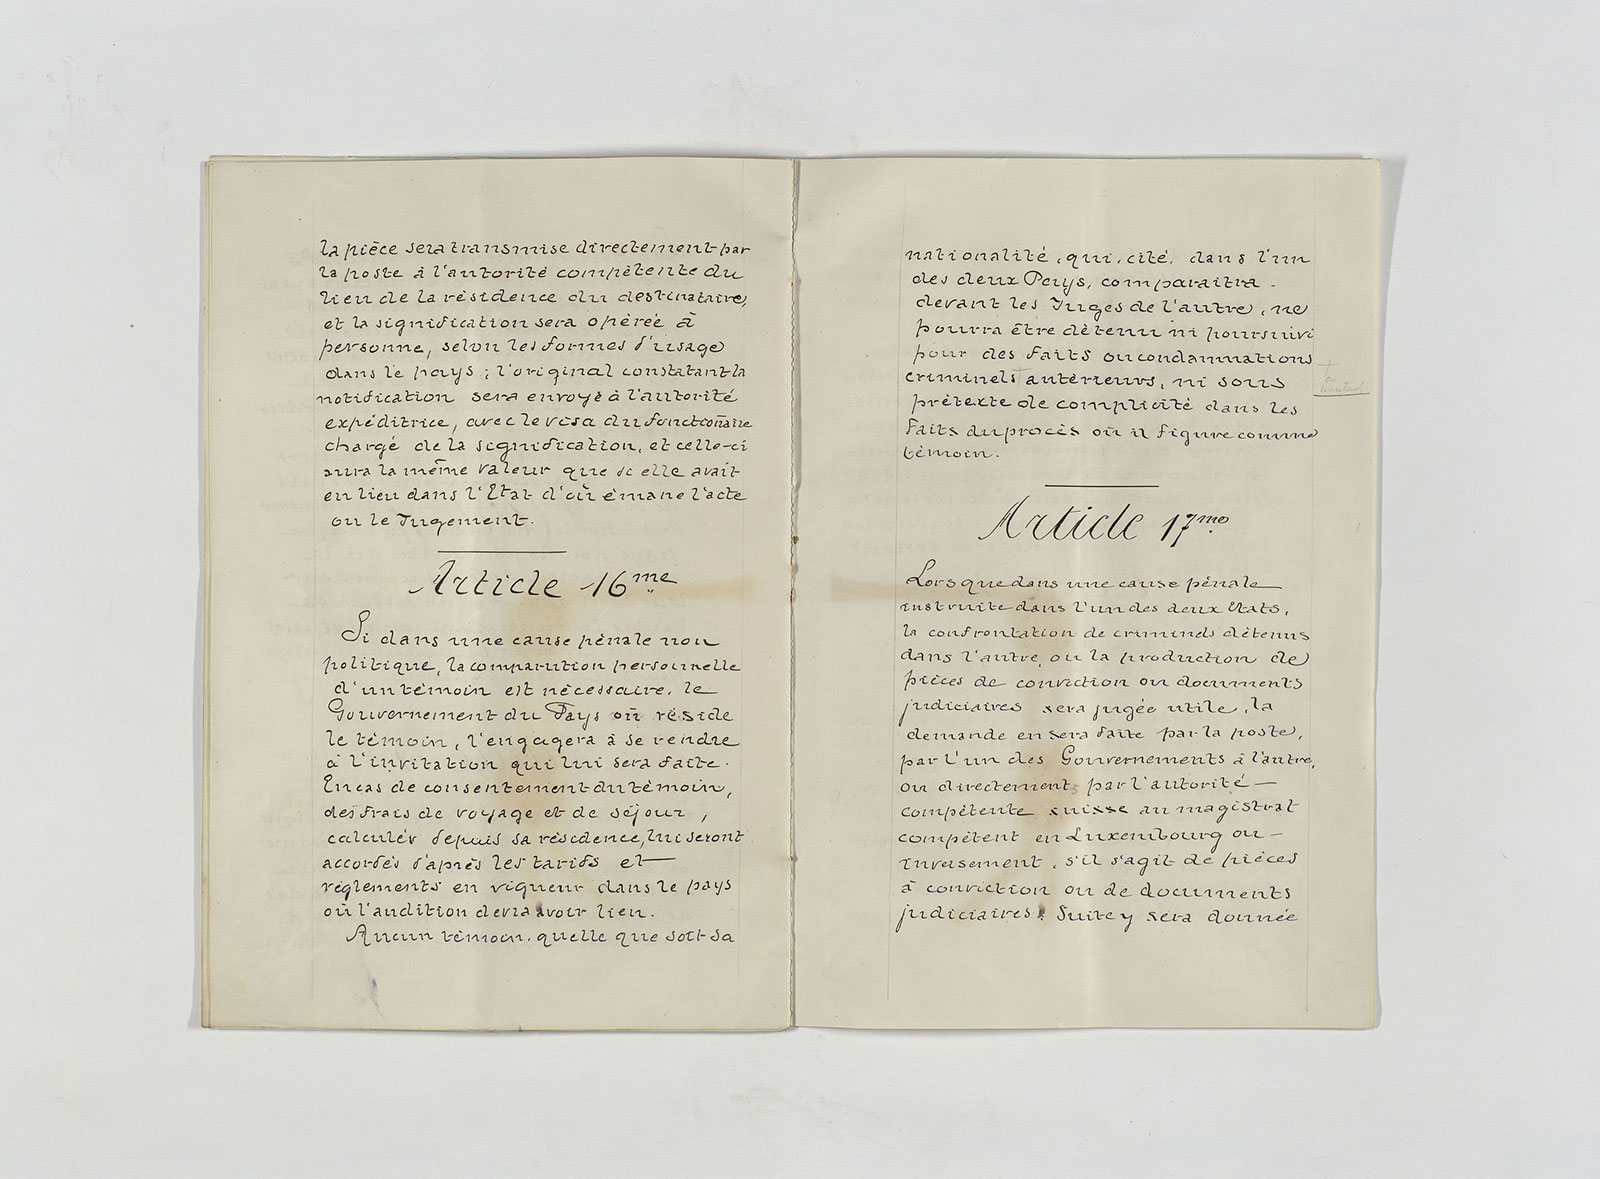 la pièce sera transmise directement par
la poste à l'autorité compétente du
lieu de la résidence du destinataire,
et la signification sera opérée à
personne, selon les formes d'usage
dans le pays ; l'original constatant la
notification sera envoyé à l'autorité
expéditrice, avec le visa du fonctionnaire
chargé de la signification, et celle-ci
aura la même valeur que si elle avait
eu lieu dans l'Etat d'où émane l'acte
ou le Jugement.
Article 16me
Si dans une cause pénale non
politique, la comparution personnelle
d'un témoin est nécessaire, le
Gouvernement du Pays où réside
le témoin, l'engagera à se rendre
à l'invitation qui lui sera faite.
En cas de consentement du témoin,
des frais de voyage et de séjour,
calculés depuis sa résidence, lui seront
accordés d'après les tarifs et
règlements en vigueur dans le pays
où l'audition devra avoir lieu.
Aucun témoin, quelle que soit sa
nationalité, qui, cité, dans l'un
des deux Pays, comparaîtra
devant les Juges de l'autre, ne
pourra être détenu ni poursuivi
pour des faits ou condamnations
criminels antérieurs, ni sous
prétexte de complicité dans les
faits du procès où il figure comme
témoin.
Article 17me
Lorsque dans une cause pénale
instruite dans l'un des deux Etats,
la confrontation de criminels détenus
dans l'autre, ou la production de
pièces de conviction ou documents
judiciaires sera jugée utile, la
demande en sera faite par la poste,
par l'un des Gouvernements à l'autre,
ou directement par l'autorité —
compétente suisse au magistrat
compétent en Luxembourg ou —
inversement, s'il s'agit de pièces
à conviction ou de documents
judiciaires. Suite y sera donnée